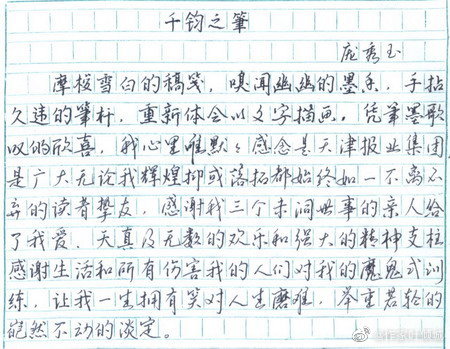 千钧之筆
庞秀玉
摩挲雪白的稿笺，嗅闻幽幽的墨香，手拈
久违的筆杆，重新体会以文字描画，凭筆墨歌
叹的欣喜，我心里唯默々感念是天津报业集团
是广大无论我辉煌抑或落拓都始终如一不离不
弃的读者挚友，感谢我三个未谙世事的亲人给
了我爱、天真及无数的欢乐和强大的精神支柱
感谢生活和所有伤害我的人们对我的魔鬼式训
练，让我一生拥有笑对人生磨难，举重若轻的
岿然不动的淡定。